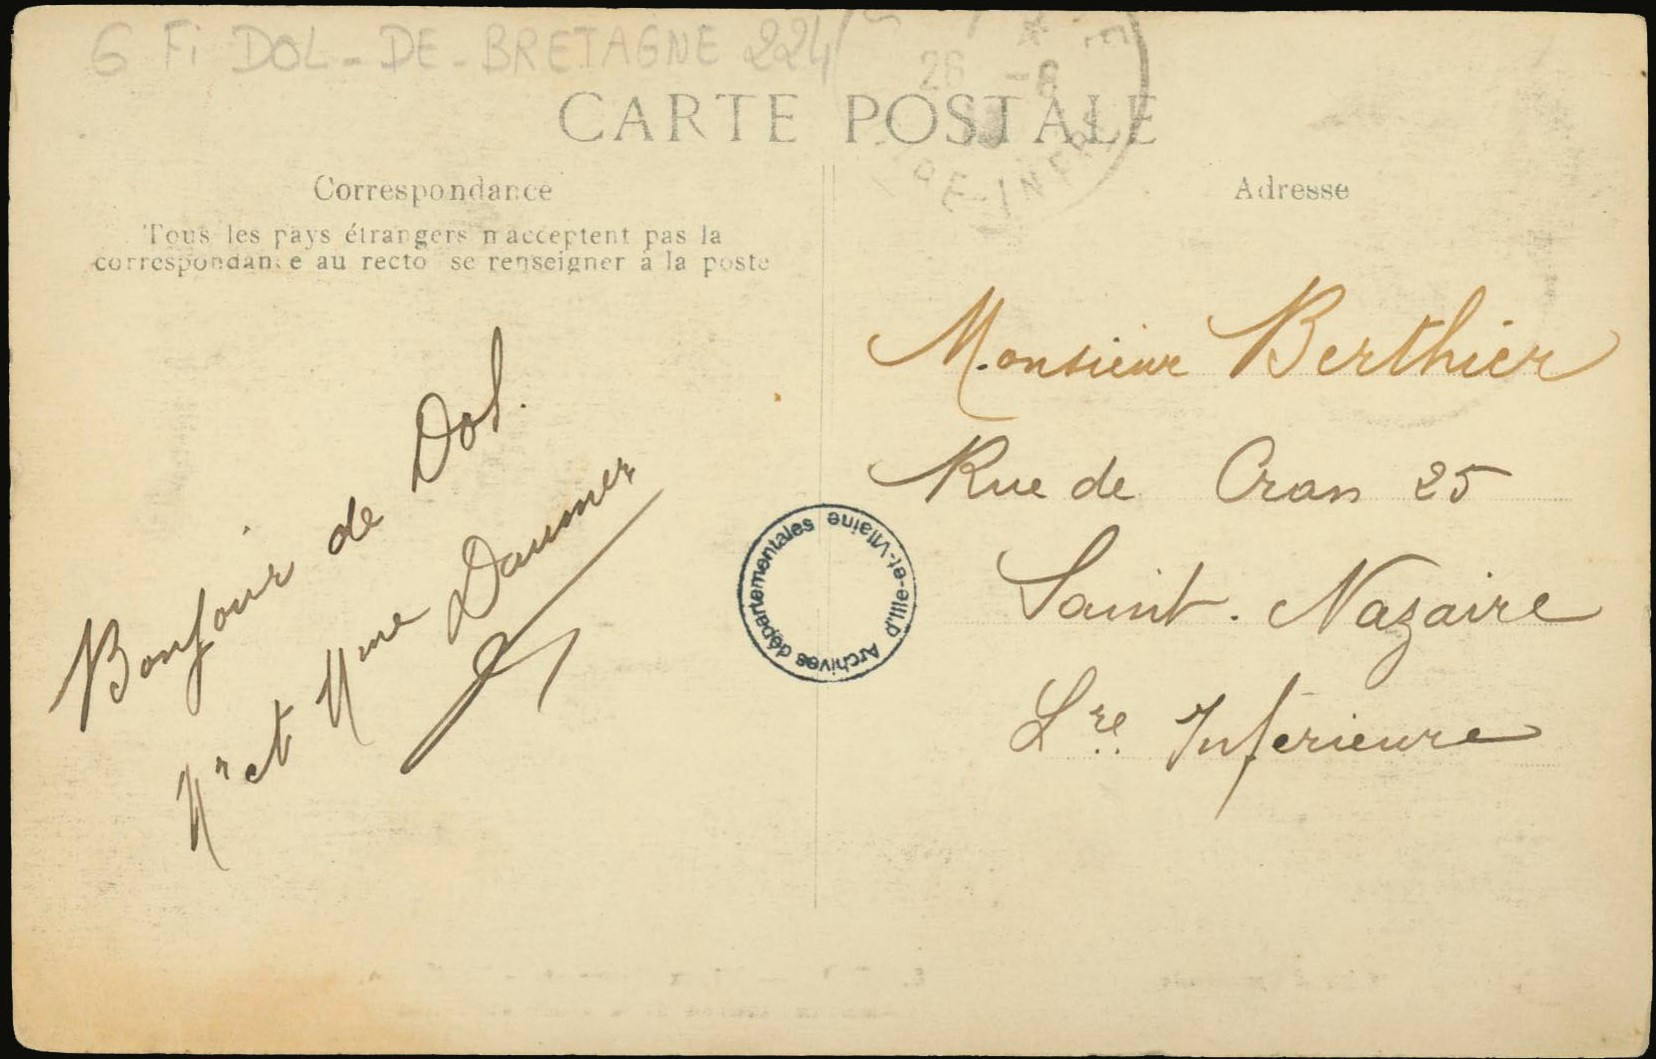 6 Fi DOL-DE-BRETAGNE 224/
26 -8
RE-INFRE
CARTE POSTALE
Correspondance
Tous les pays étrangers n'acceptent pas la
correspondance au recto se renseigner à la poste
Bonjour de Dol.
Mr et Mme Daumer
Adresse
Monsieur Berthier
Rue de Cran 25
Saint. Nazaire
Lre Inferieure
Archives départementales d'Ille-et-Vilaine